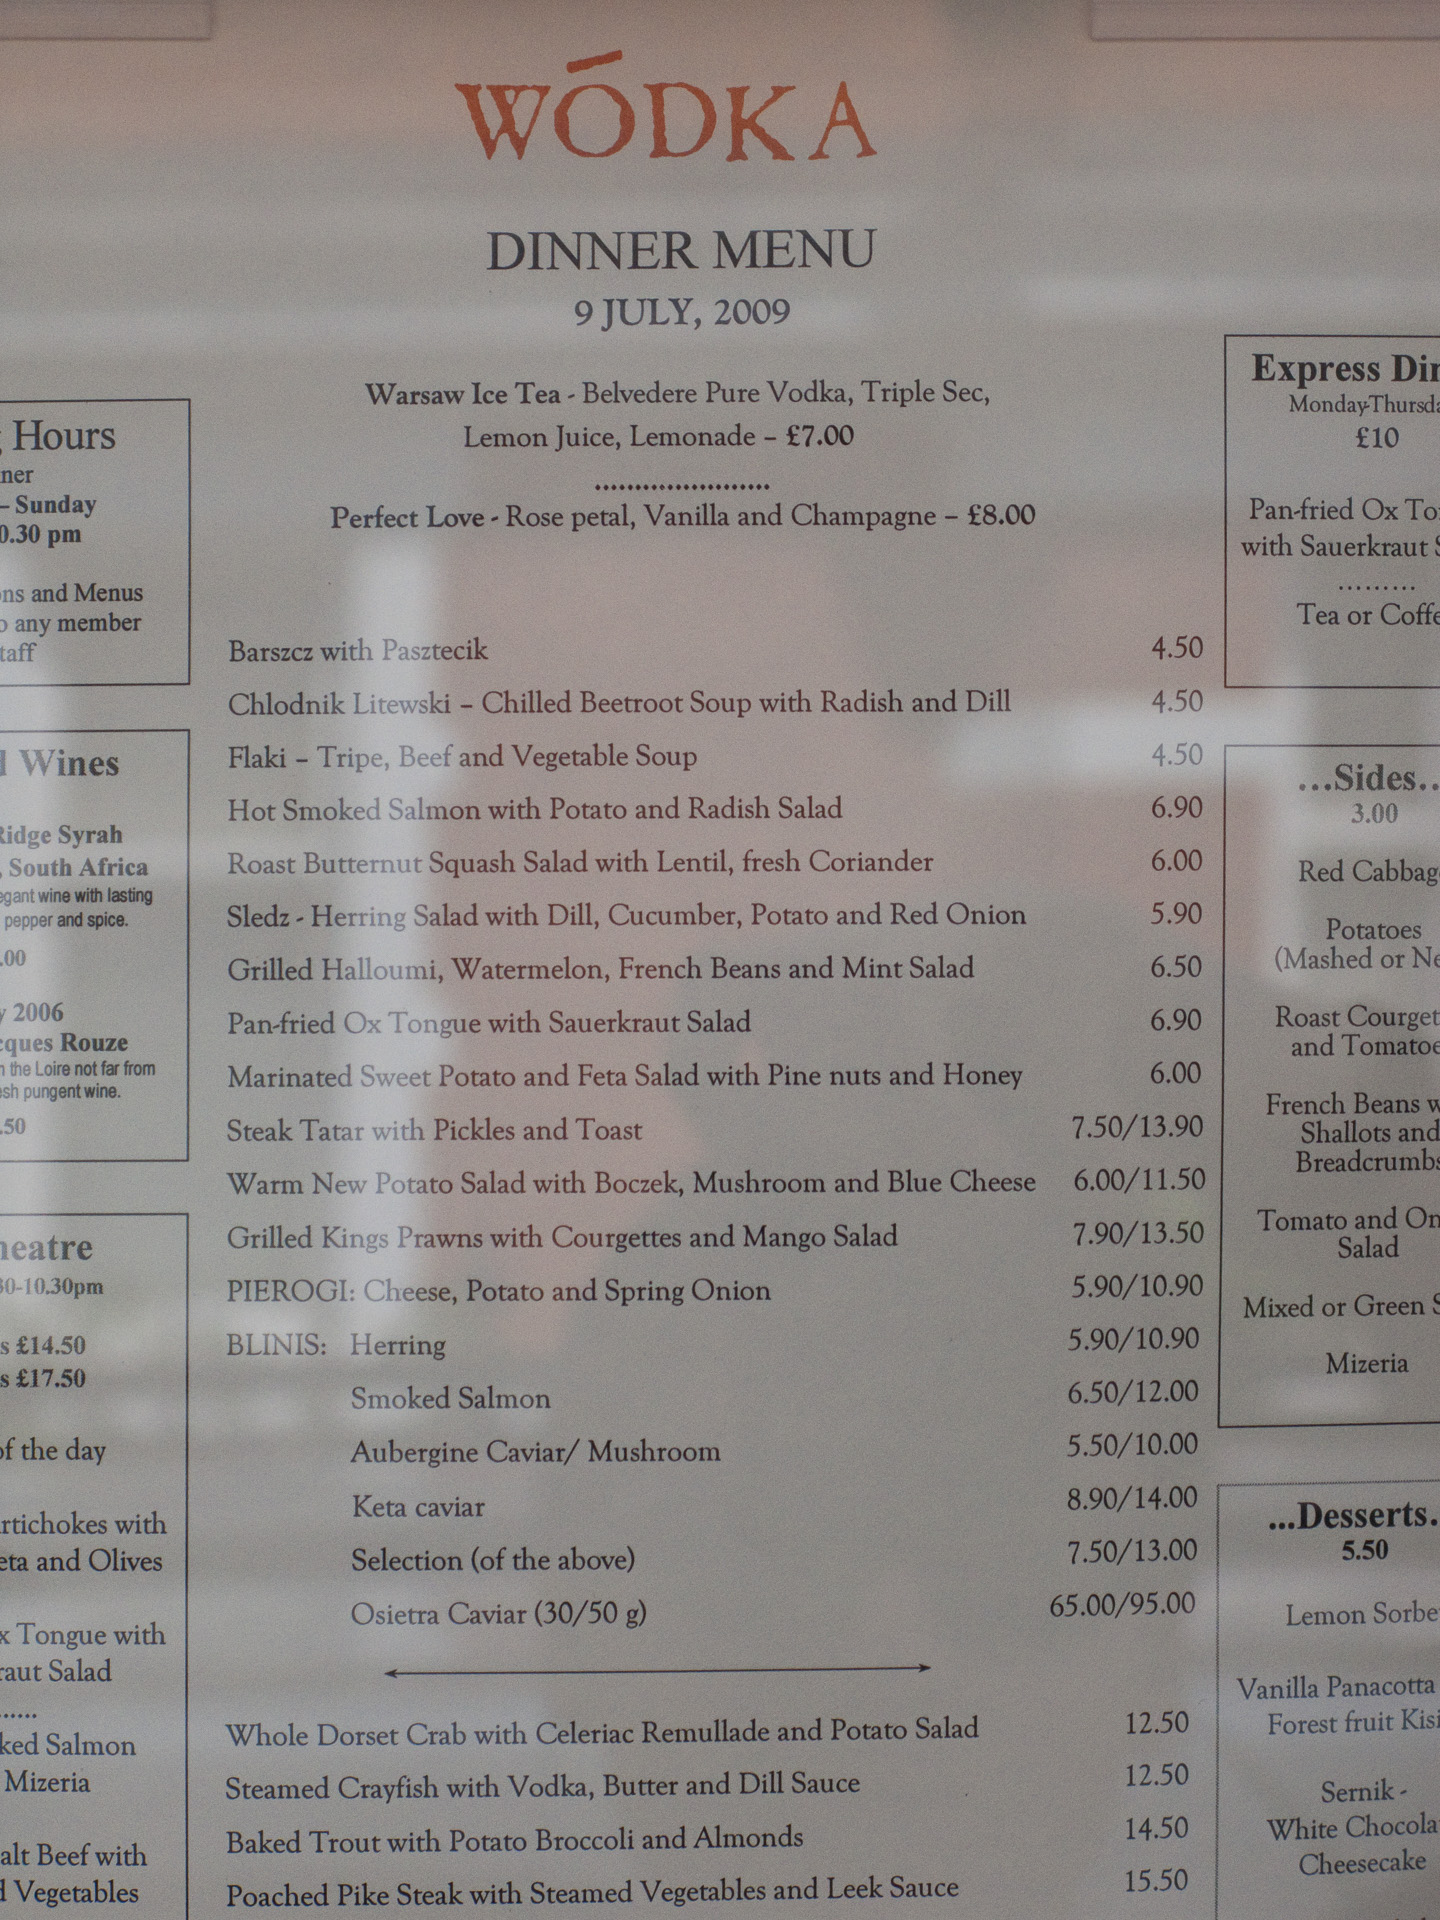 WÓDKA
DINNER MENU
9 JULY, 2009
Warsaw Ice Tea - Belvedere Pure Vodka, Triple Sec,
Lemon Juice, Lemonade – £7.00
......................
Perfect Love - Rose petal, Vanilla and Champagne – £8.00
Barszcz with Pasztecik 4.50
Chlodnik Litewski – Chilled Beetroot Soup with Radish and Dill 4.50
Flaki – Tripe, Beef and Vegetable Soup 4.50
Hot Smoked Salmon with Potato and Radish Salad 6.90
Roast Butternut Squash Salad with Lentil, fresh Coriander 6.00
Sledz - Herring Salad with Dill, Cucumber, Potato and Red Onion 5.90
Grilled Halloumi, Watermelon, French Beans and Mint Salad 6.50
Pan-fried Ox Tongue with Sauerkraut Salad 6.90
Marinated Sweet Potato and Feta Salad with Pine nuts and Honey 6.00
Steak Tatar with Pickles and Toast 7.50/13.90
Warm New Potato Salad with Boczek, Mushroom and Blue Cheese 6.00/11.50
Grilled Kings Prawns with Courgettes and Mango Salad 7.90/13.50
PIEROGI: Cheese, Potato and Spring Onion 5.90/10.90
BLINIS: Herring 5.90/10.90
Smoked Salmon 6.50/12.00
Aubergine Caviar/ Mushroom 5.50/10.00
Keta caviar 8.90/14.00
Selection (of the above) 7.50/13.00
Osietra Caviar (30/50 g) 65.00/95.00
Whole Dorset Crab with Celeriac Remullade and Potato Salad 12.50
Steamed Crayfish with Vodka, Butter and Dill Sauce 12.50
Baked Trout with Potato Broccoli and Almonds 14.50
Poached Pike Steak with Steamed Vegetables and Leek Sauce 15.50
Hours
– Sunday
0.30 pm
and Menus
any member
Wines
Ridge Syrah
, South Africa
wine with lasting
pepper and spice.
.00
2006
Rouze
the Loire not far from
pungent wine.
.50
30-10.30pm
£14.50
£17.50
of the day
with
and Olives
Tongue with
Salad
......
Salmon
Mizeria
Beef with
Vegetables
Express
Monday-
£10
Pan-fried Ox
with Sauerkraut
.........
Tea or
...Sides..
3.00
Red
Potatoes
(Mashed or
Roast
and
French Beans
Shallots and
Tomato and
Salad
Mixed or Green
Mizeria
...Desserts.
5.50
Lemon
Vanilla Panacotta
Forest fruit
Sernik -
White
Cheesecake